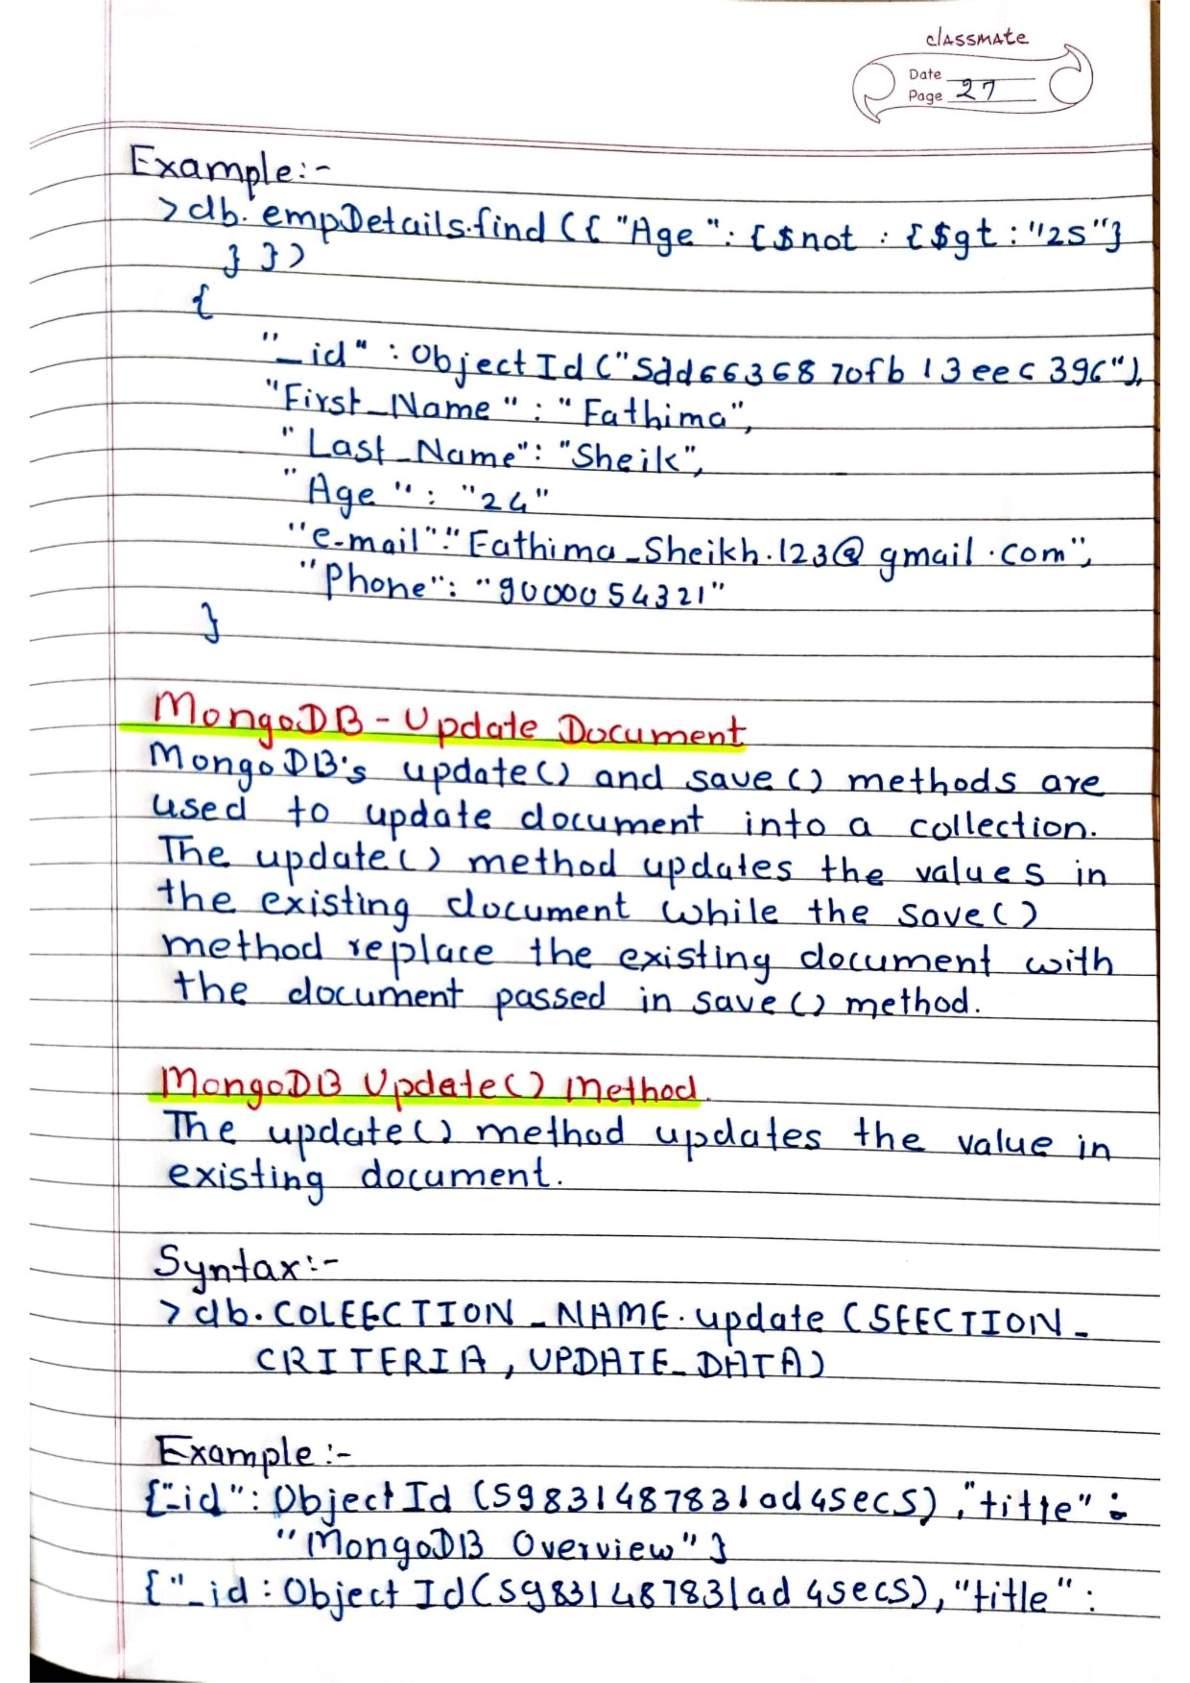 classmate
Date
Page 27
Example:-
>db.empDetails.find({ "Age": {$not : {$gt : "25"}
} })
{
"_id" : ObjectId("5dd6636870fb13eec396"),
"First_Name" : "Fathima",
"Last_Name": "Sheik",
"Age" : "24"
"e-mail":"Fathima_Sheikh.123@gmail.com",
"Phone": "9000054321"
}
MongoDB - Update Document
MongoDB's update() and save() methods are
used to update document into a collection.
The update() method updates the values in
the existing document while the save()
method replace the existing document with
the document passed in save() method.
MongoDB Update() Method.
The update() method updates the value in
existing document.
Syntax:-
>db.COLEECTION_NAME.update(SEECTION_
CRITERIA, UPDATE_DATA)
Example :-
{"_id": ObjectId (59831487831ad45ec5), "title" :
"MongoDB Overview"}
{"_id : ObjectId(59831487831ad45ec5), "title" :